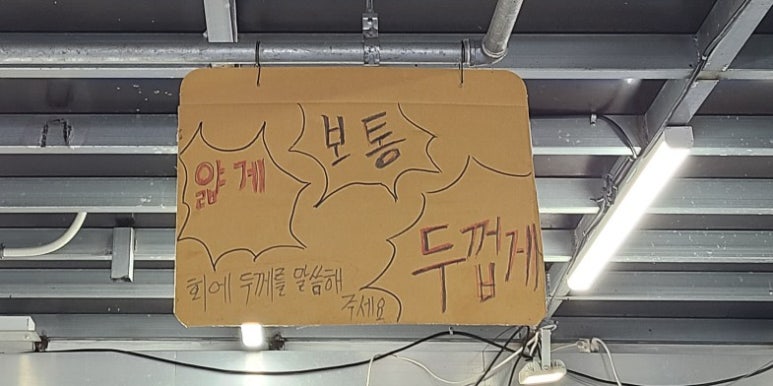 보통
얇게
두껍게
회에 두께를 말씀해
주세요